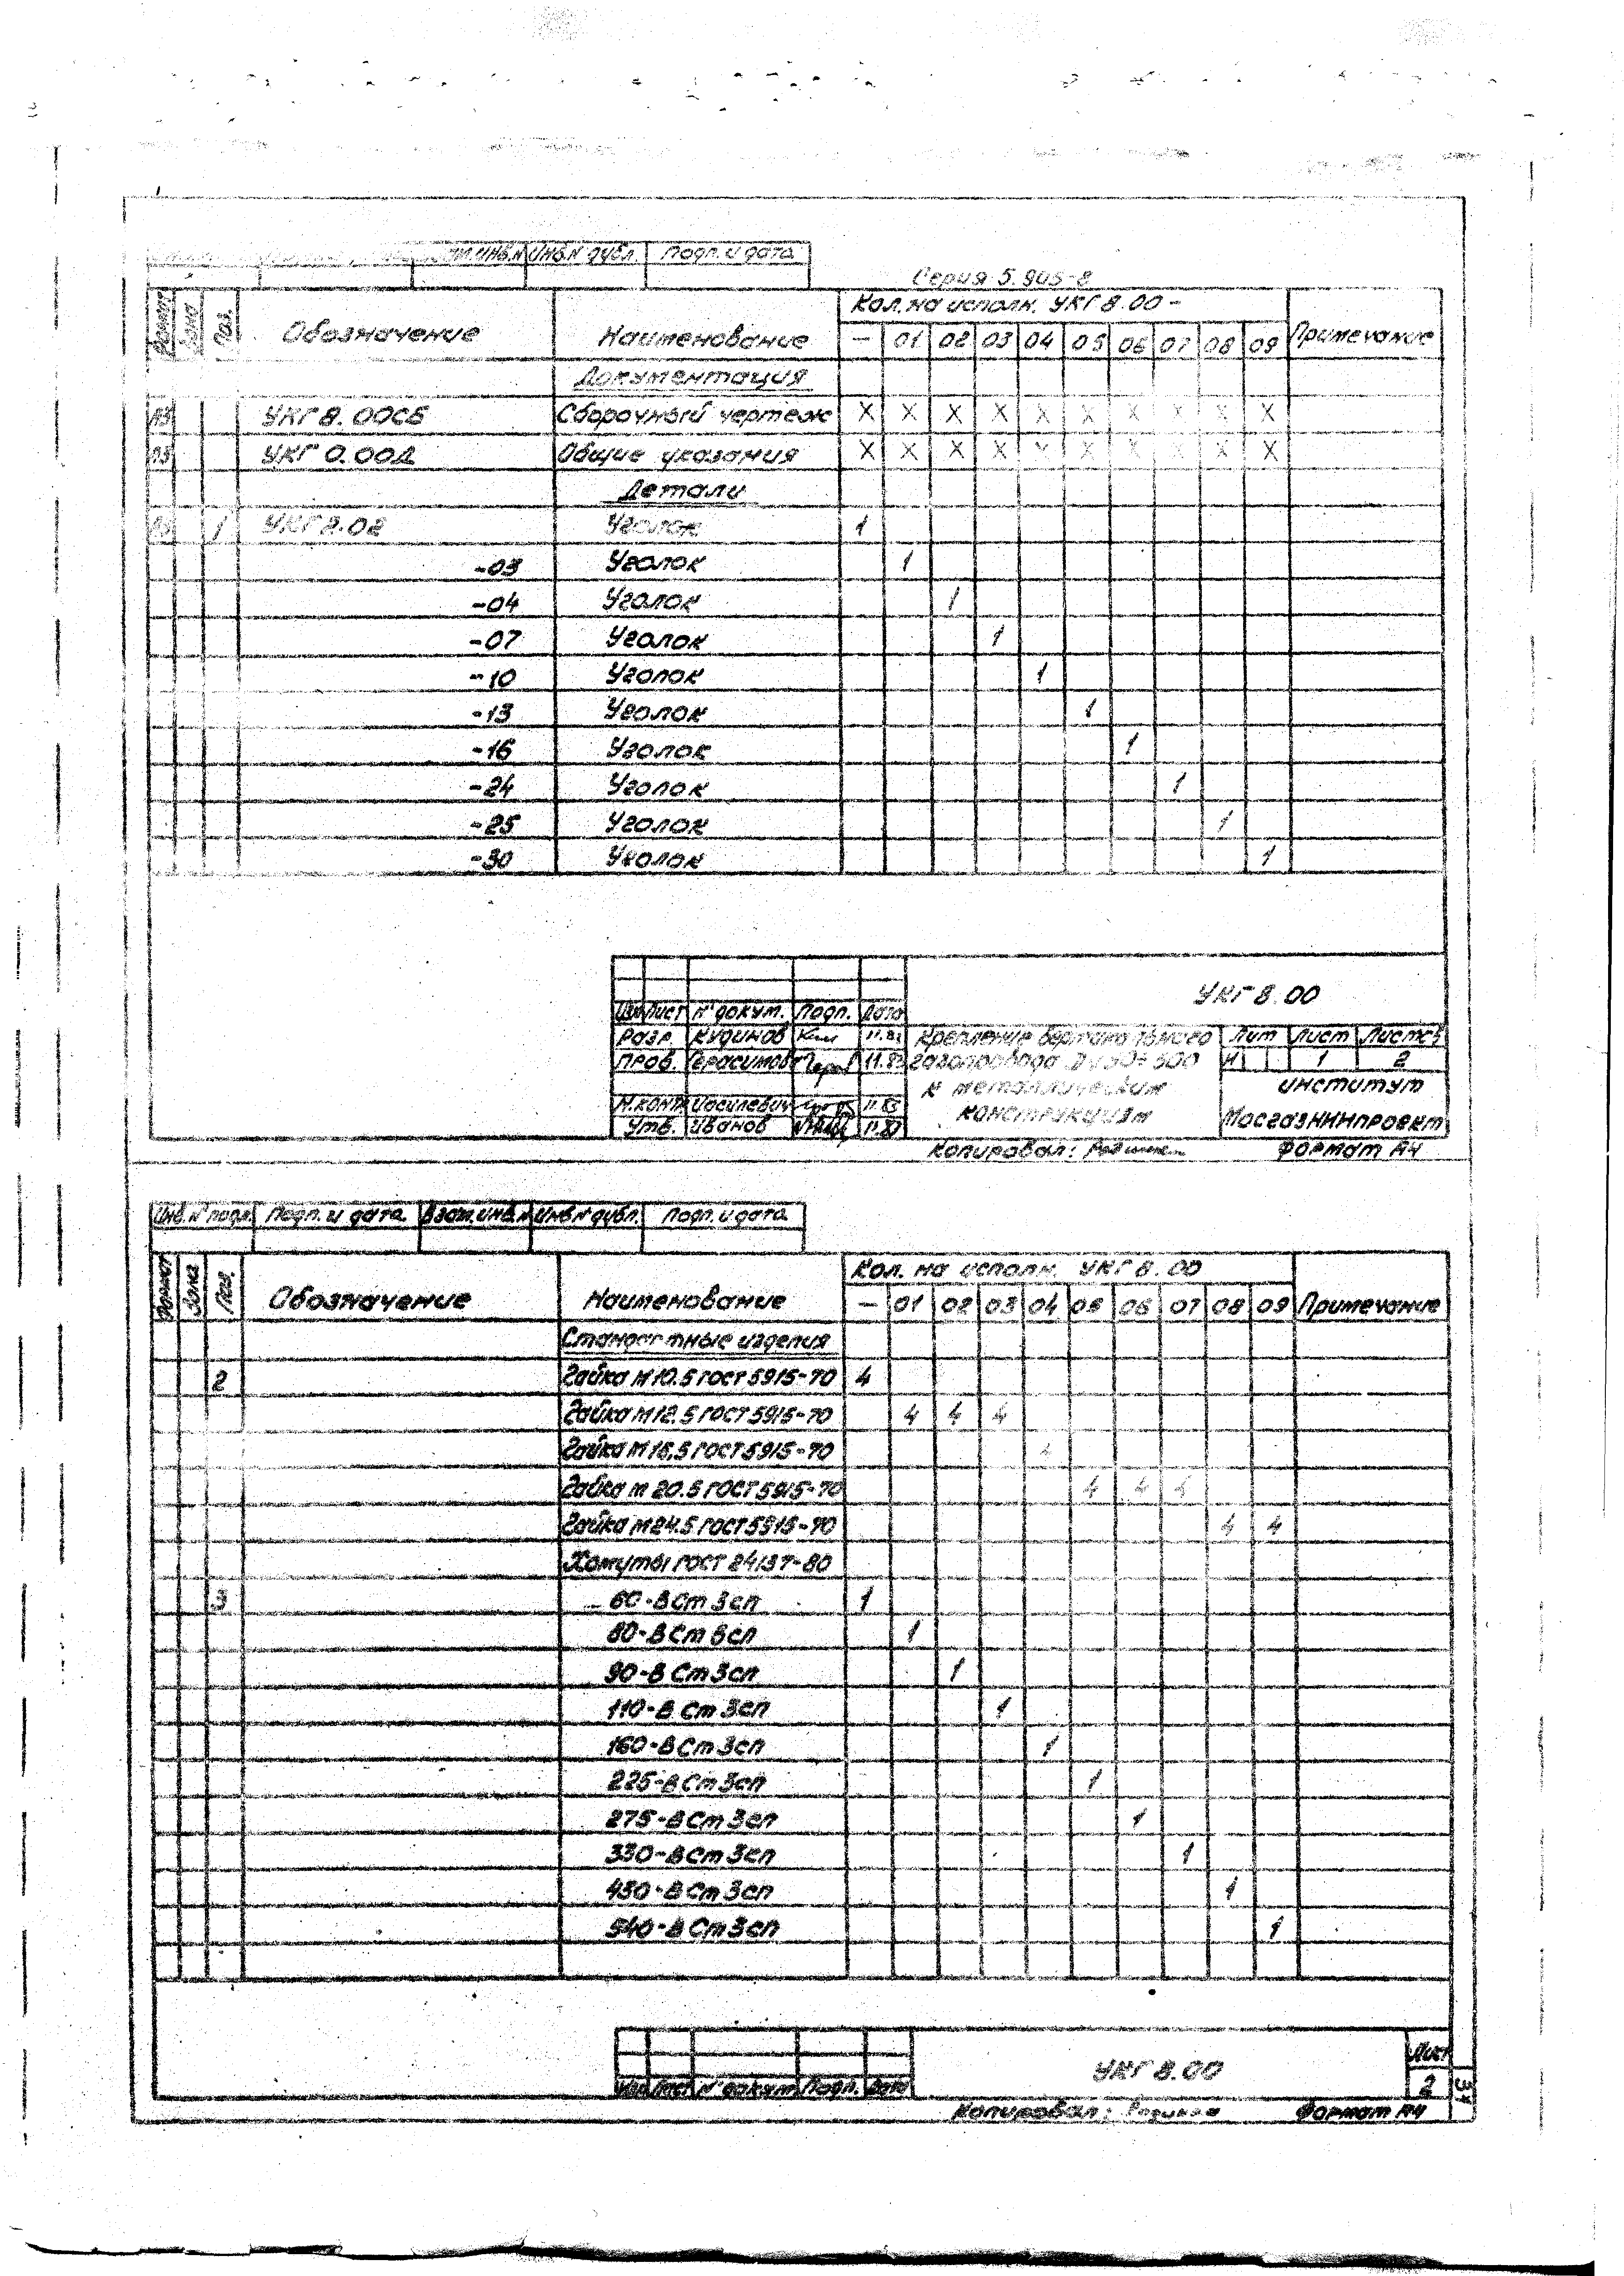 инв.N Инв.N дубл. Подп. и дата
Серия 5.905-8
Формат Зона Поз. Обозначение Наименование Кол. на исполн. УКГ 8.00 - Примечание
— 01 02 03 04 05 06 07 08 09
Документация
А3 УКГ 8.00СБ Сборочный чертеж X X X X X X X X X X
А3 УКГ 0.00Д Общие указания X X X X X X X X X X
Детали
1 УКГ 2.02 Уголок 1
-03 Уголок 1
-04 Уголок 1
-07 Уголок 1
-10 Уголок 1
-13 Уголок 1
-16 Уголок 1
-24 Уголок 1
-25 Уголок 1
-30 Уголок 1
УКГ 8.00
Изм Лист N° докум. Подп. Дата
Разр. Кудинов 11.83 Крепление вертикального Лит Лист Листов
Пров. Герасимов 11.83 газопровода Ду 50÷500 И 1 2
к металлическим институт
Н.контр Иосилевич 11.83 конструкциям МосгазНИИпроект
Утв. Иванов 11.83
Копировал: Формат А4
Инв. N° подл. Подп. и дата Взам. инв. N Инв. N дубл. Подп. и дата
Формат Зона Поз. Обозначение Наименование Кол. на исполн. УКГ 8.00 Примечание
— 01 02 03 04 05 06 07 08 09
Стандартные изделия
2 Гайка М10.5 ГОСТ 5915-70 4
Гайка М12.5 ГОСТ 5915-70 4 4 4
Гайка М16.5 ГОСТ 5915-70 4
Гайка М20.5 ГОСТ 5915-70 4 4 4
Гайка М24.5 ГОСТ 5915-70 4 4
Хомуты ГОСТ 24137-80
3 60-В Ст 3сп 1
80-В Ст 3сп 1
90-В Ст 3сп 1
110-В Ст 3сп 1
160-В Ст 3сп 1
225-В Ст 3сп 1
275-В Ст 3сп 1
330-В Ст 3сп 1
430-В Ст 3сп 1
540-В Ст 3сп 1
УКГ 8.00 Лист
Изм Лист N° докум. Подп. Дата 2
Копировал: Формат А4